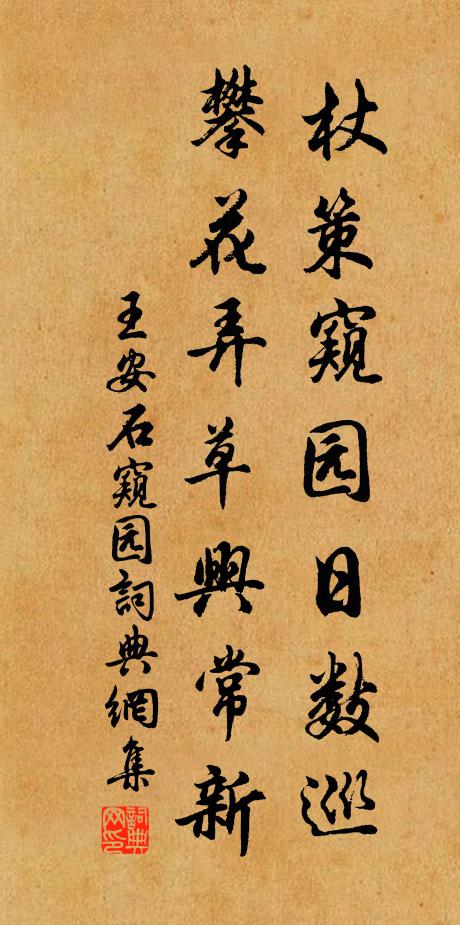 杖策窺园日数巡
攀花弄草興常新
王安石窺园詞典網集
詞典网印